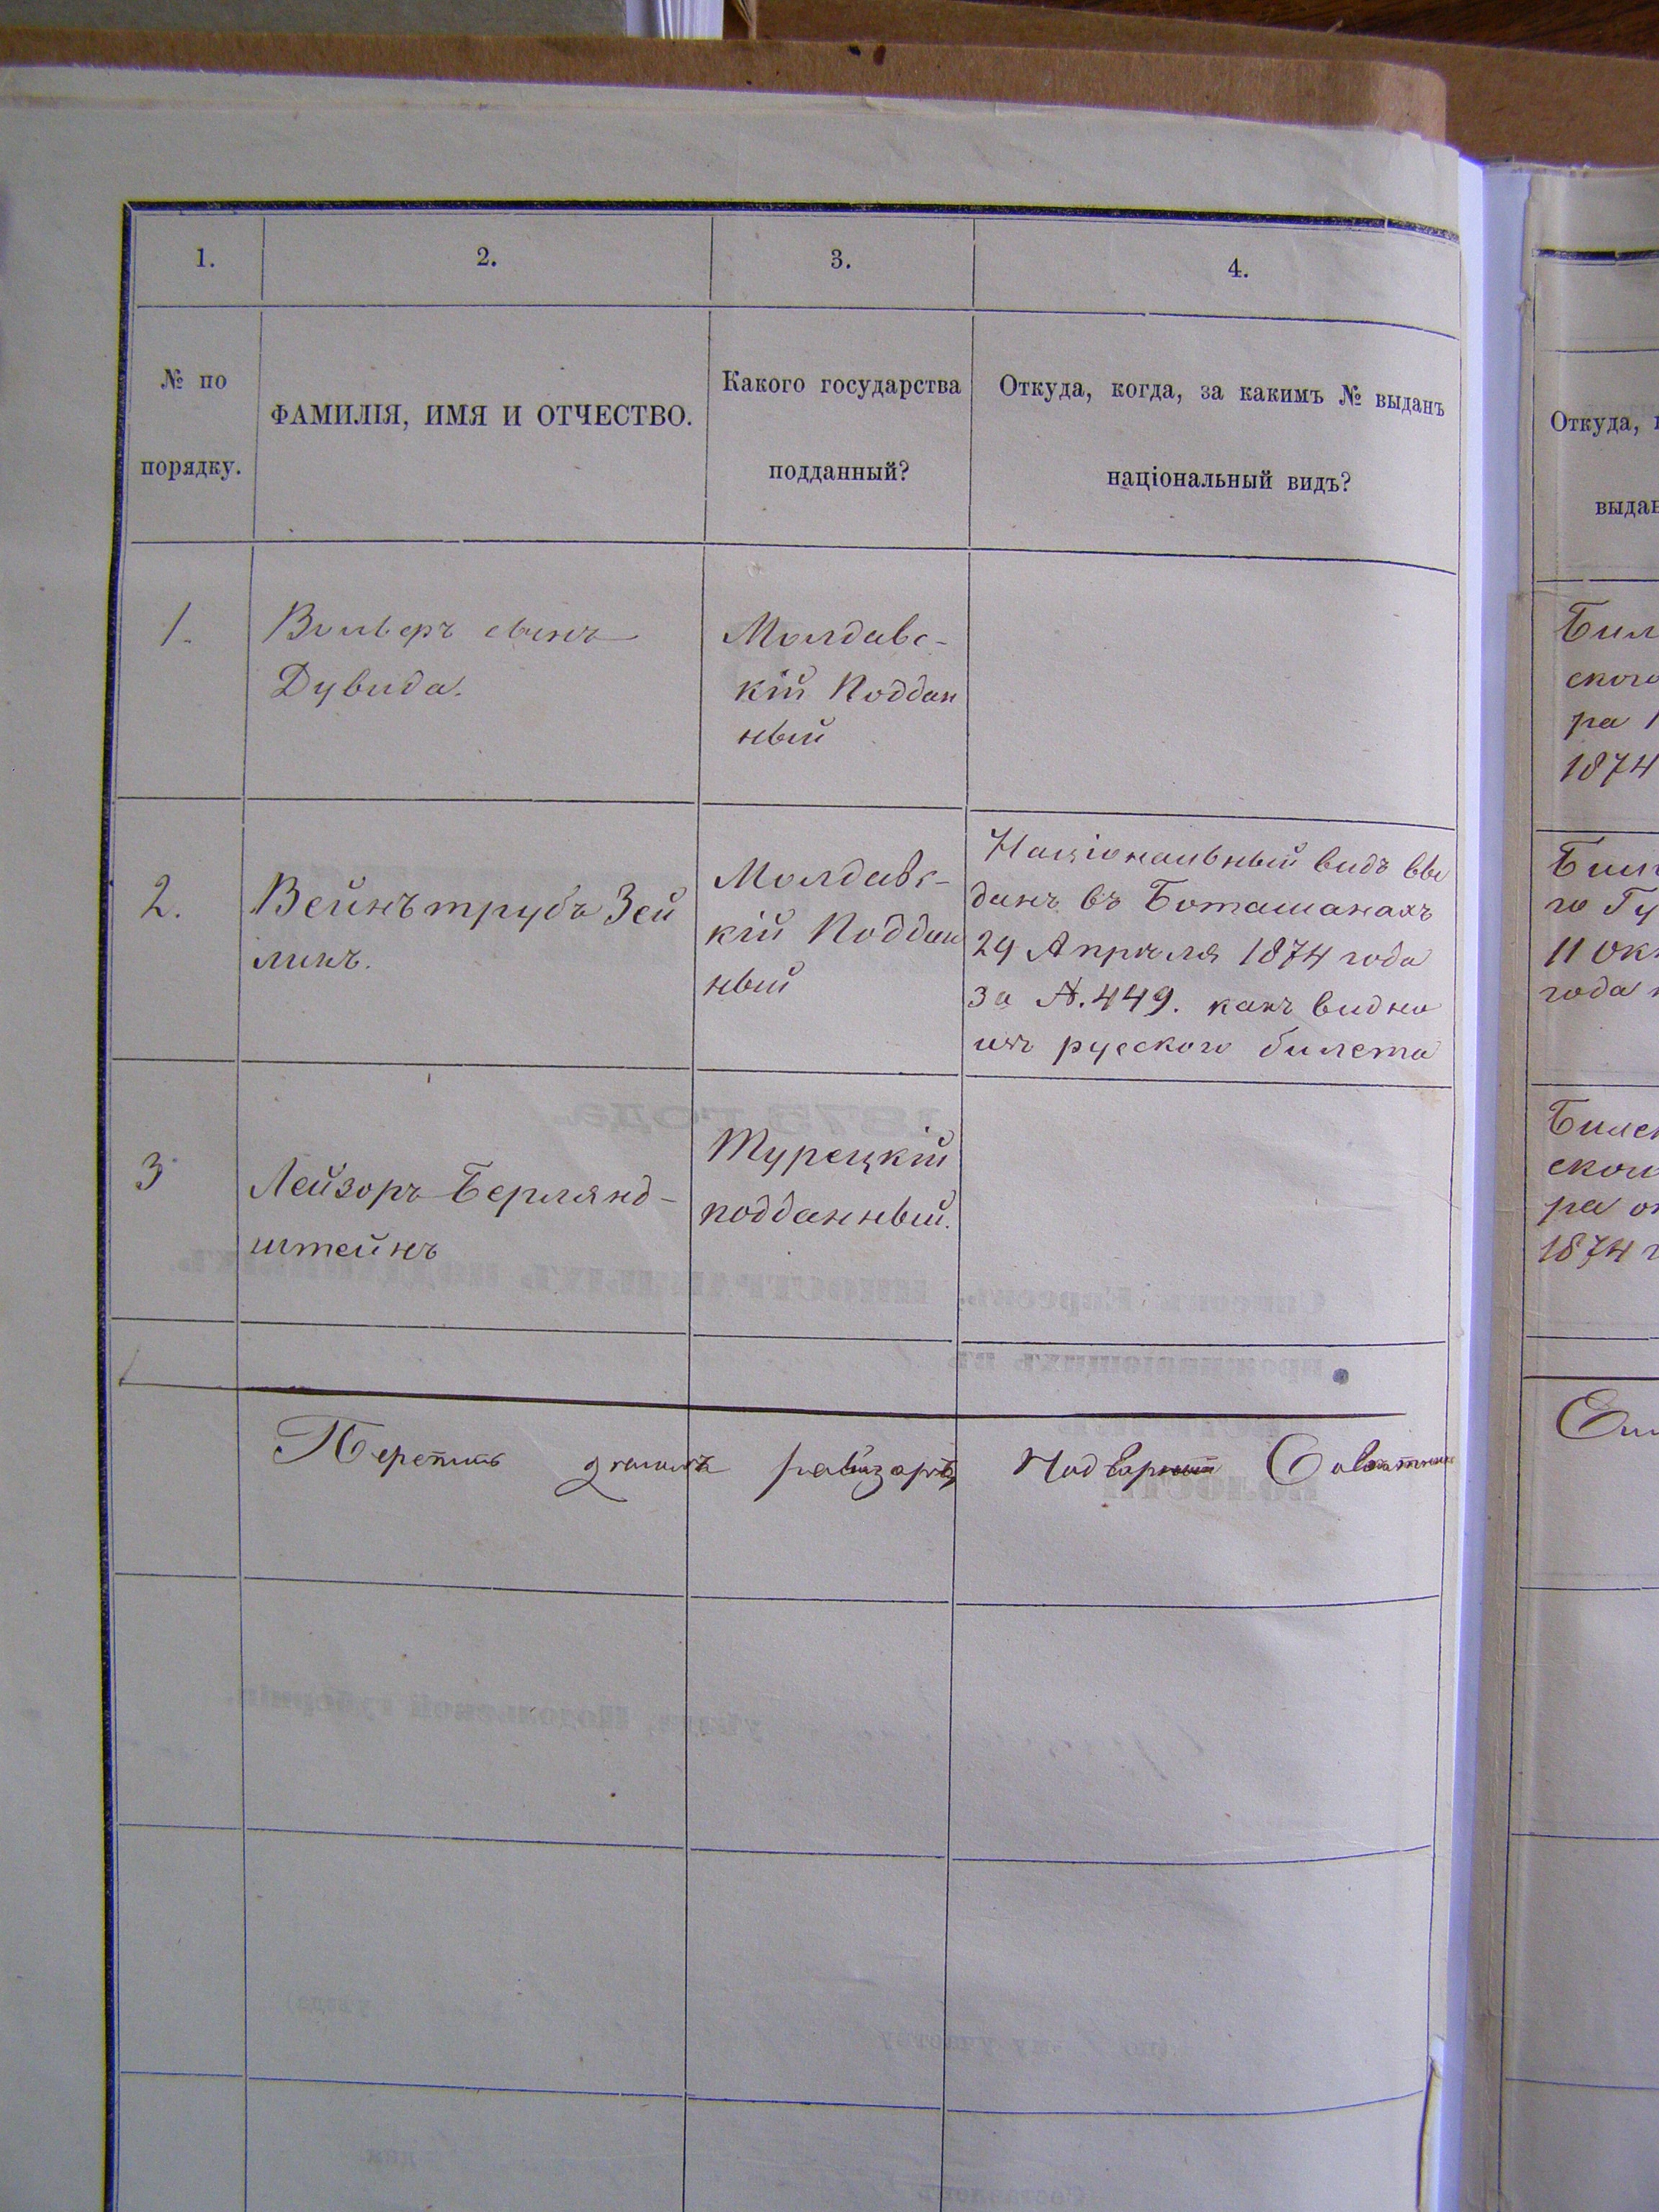 1.
2.
3.
4.
№ по
порядку.
ФАМИЛІЯ, ИМЯ И ОТЧЕСТВО.
Какого государства
подданный?
Откуда, когда, за какимъ № выданъ
національный видъ?
1.
Вольберъ сынъ
Дувида.
Молдавс-
кій Поддан
ный
2.
Вейнътрубъ Зей
линъ.
Молдавс-
кій Поддан
ный
Національный видъ вы
данъ въ Боташанахъ
29 Апрѣля 1874 года
за №. 449. какъ видно
изъ руского билета
3
Лейзоръ Берлянд-
штейнъ
Турецкій
подданный.
Перепись ревизоръ Надворный Совѣтникъ
Откуда,
Бил
ского
ра
1874
го Гу
11 Ок
года
Билет
ском
ра
1874 г